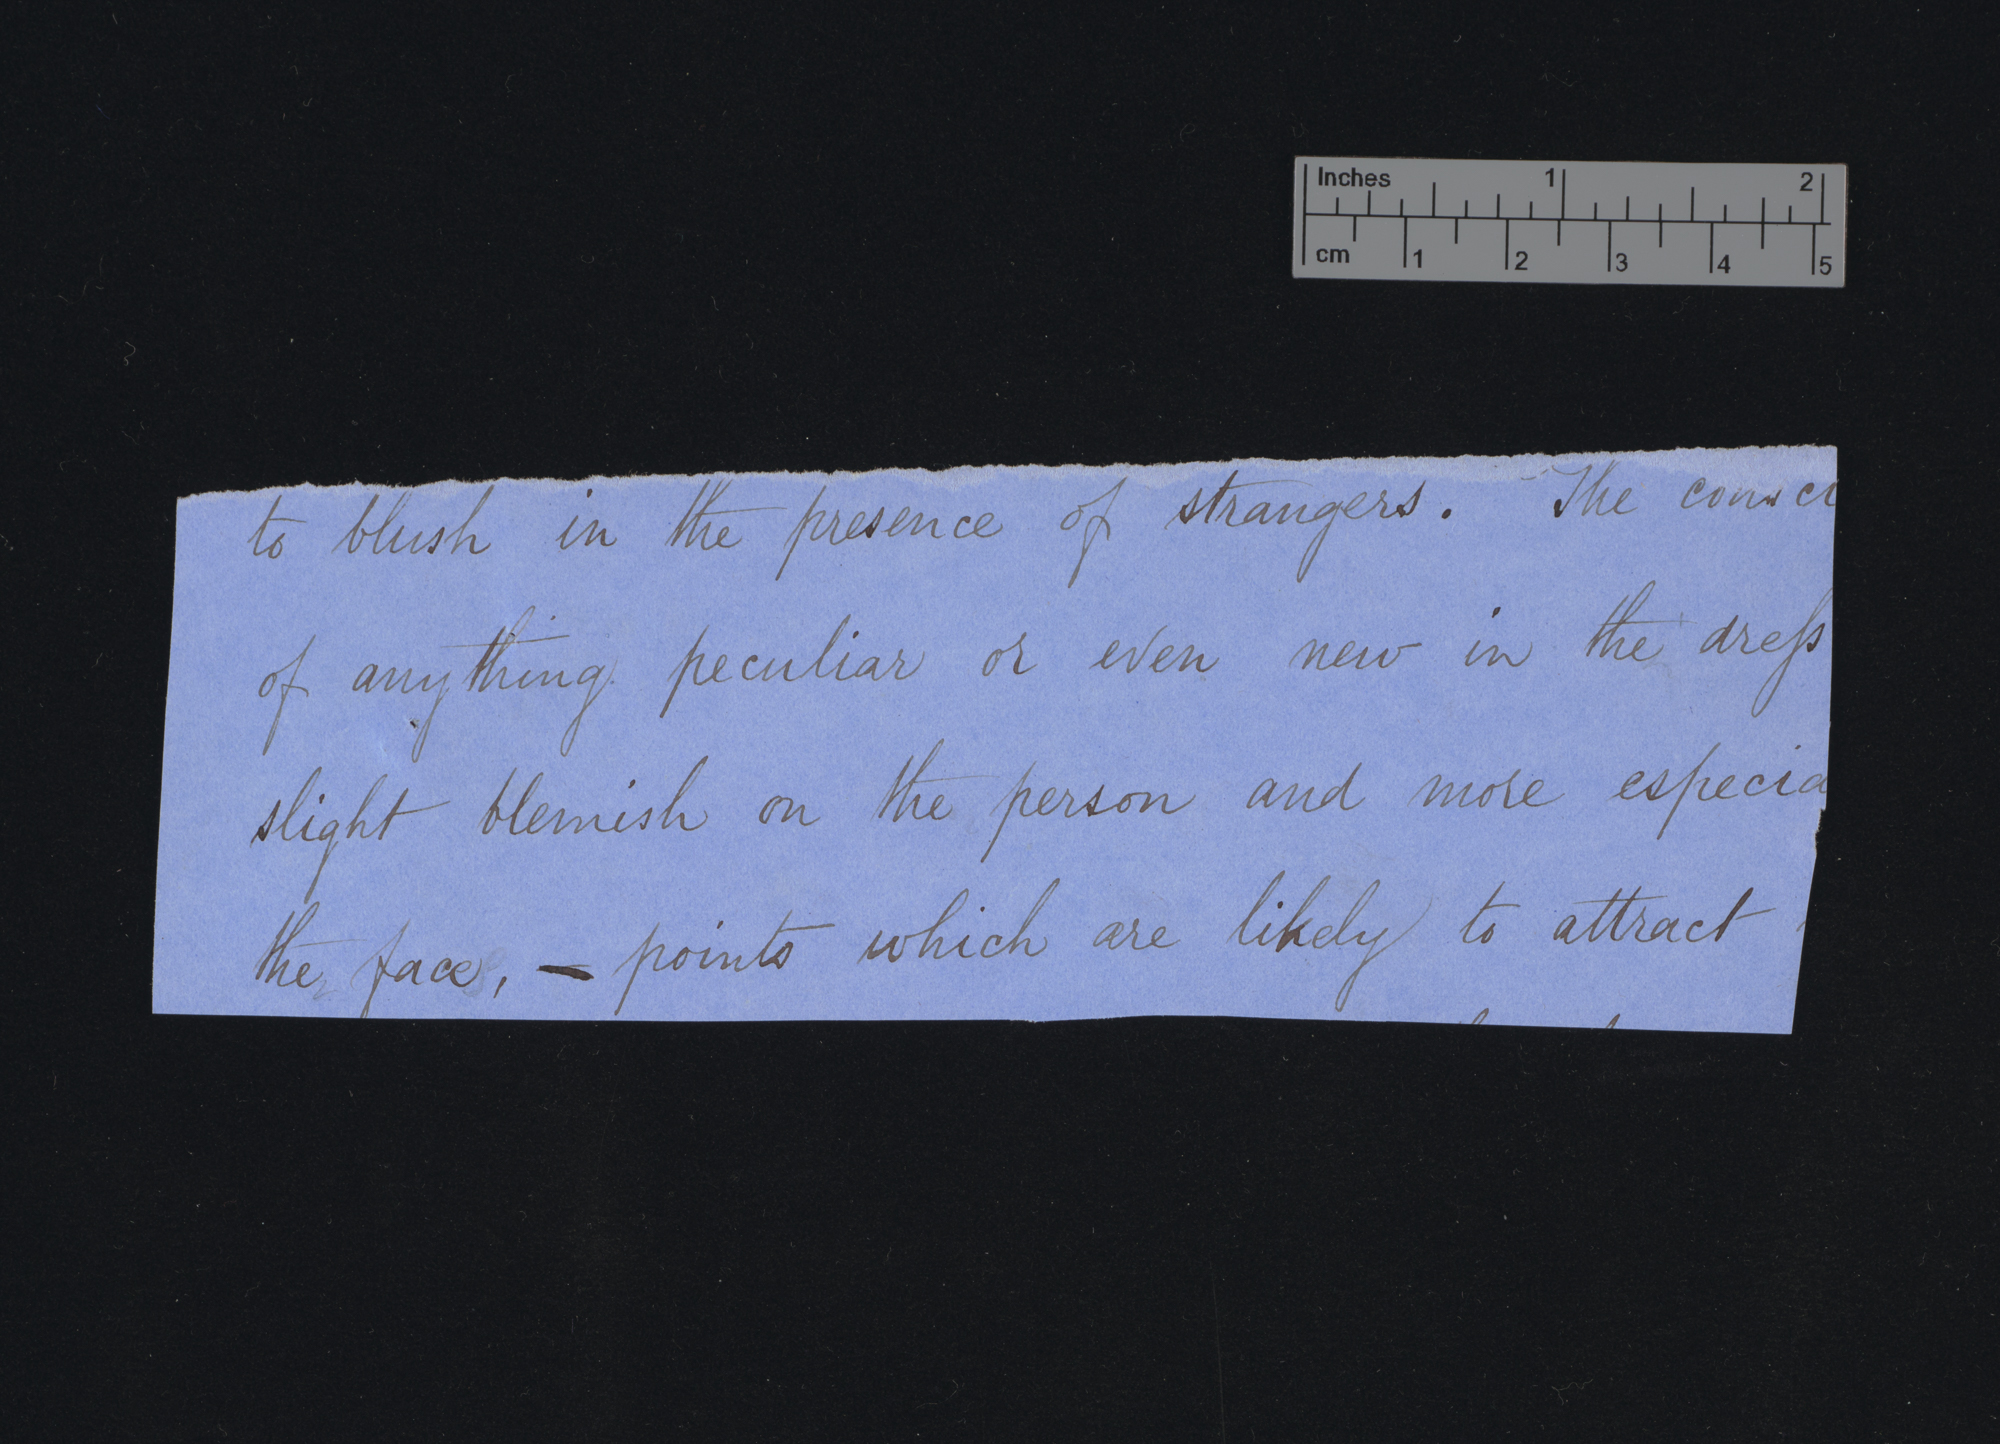 Inches 1 2
cm 1 2 3 4 5
to blush in the presence of strangers. The consci
of anything peculiar or even new in the dreſs
slight blemish on the person and more especia
the face, — points which are likely to attract